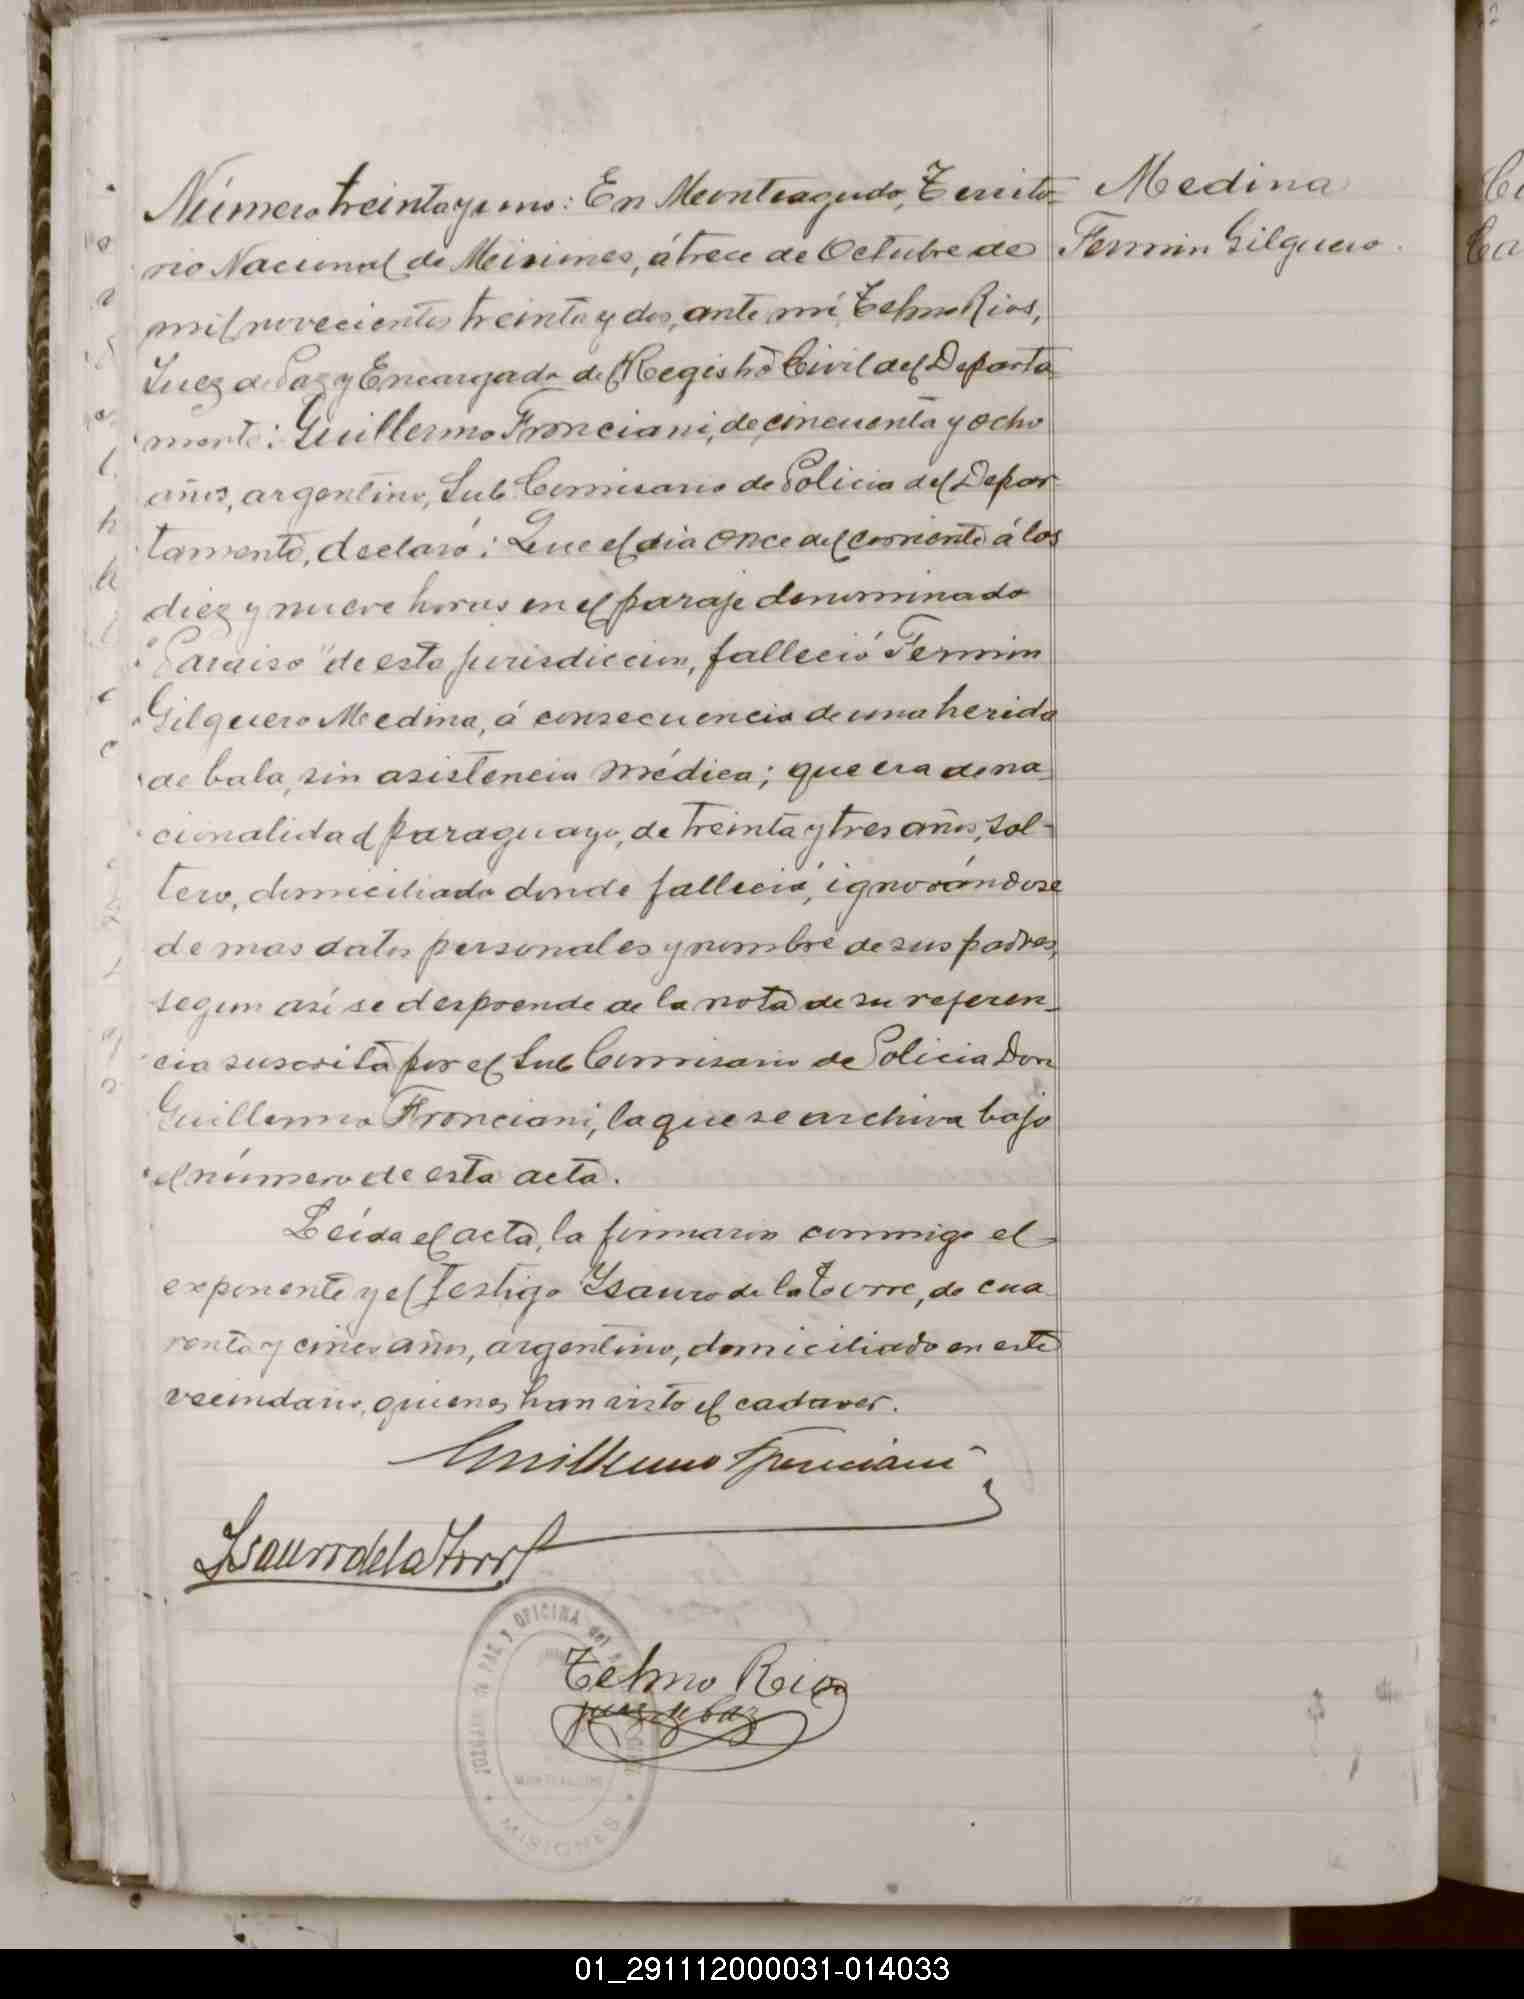 Número treinta y uno: En Monteagudo, Territo-
rio Nacional de Misiones, á trece de Octubre de
mil novecientos treinta y dos, ante mí, Telmo Rios,
Juez de Paz y Encargado del Registro Civil del Departa-
mento: Guillermo Fronciani, de cincuenta y ocho
años, argentino, Sub Comisario de Policia del Depar-
tamento, declaró: Que el dia once del corriente á las
diez y nueve horas en el paraje denominado
"Paraiso" de esta jurisdiccion, falleció Fermin
Gilguero Medina, á consecuencia de una herida
de bala, sin asistencia médica; que era de na-
cionalidad paraguayo, de treinta y tres años, sol-
tero, domiciliado donde falleció, ignorándose
demas datos personales y nombre de sus padres,
segun así se desprende de la nota de su referen-
cia suscrita por el Sub Comisario de Policia Don
Guillermo Fronciani, la que se archiva bajo
el número de esta acta.
Leída el acta, la firmaron conmigo el
exponente y el testigo Ysauro de la Torre, de cua-
renta y cinco años, argentino, domiciliado en este
vecindario, quienes han visto el cadaver.
Guillermo Fronciani
Ysauro de la Torre
Telmo Rios
Juez de Paz
JUZGADO DE PAZ Y OFICINA del
MONTEAGUDO
MISIONES
Medina
Fermin Gilguero.
01_291112000031-014033